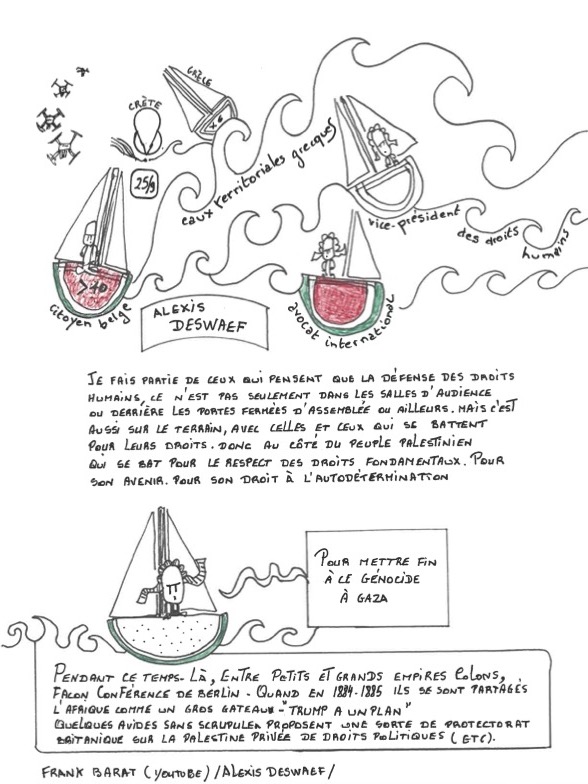 GRÈCE
CRÈTE
x6
25/9
eaux territoriales grecques
vice-président
des droits
humains
>70
citoyen belge
ALEXIS
DESWAEF
avocat international
JE FAIS PARTIE DE CEUX QUI PENSENT QUE LA DÉFENSE DES DROITS
HUMAINS, CE N'EST PAS SEULEMENT DANS LES SALLES D'AUDIENCE
OU DERRIÈRE LES PORTES FERMÉES D'ASSEMBLÉE OU AILLEURS. MAIS C'EST
AUSSI SUR LE TERRAIN, AVEC CELLES ET CEUX QUI SE BATTENT
POUR LEURS DROITS. DONC AU CÔTÉ DU PEUPLE PALESTINIEN
QUI SE BAT POUR LE RESPECT DES DROITS FONDAMENTAUX. POUR
SON AVENIR. POUR SON DROIT À L'AUTODÉTERMINATION
POUR METTRE FIN
À CE GÉNOCIDE
À GAZA
PENDANT CE TEMPS-LÀ, ENTRE PETITS ET GRANDS EMPIRES COLONS,
FAÇON CONFÉRENCE DE BERLIN - QUAND EN 1884-1885 ILS SE SONT PARTAGÉS
L'AFRIQUE COMME UN GROS GATEAU - "TRUMP A UN PLAN"
QUELQUES AVIDES SANS SCRUPULES PROPOSENT UNE SORTE DE PROTECTORAT
BRITANIQUE SUR LA PALESTINE PRIVÉE DE DROITS POLITIQUES (ETC).
FRANK BARAT (YOUTUBE) /ALEXIS DESWAEF/